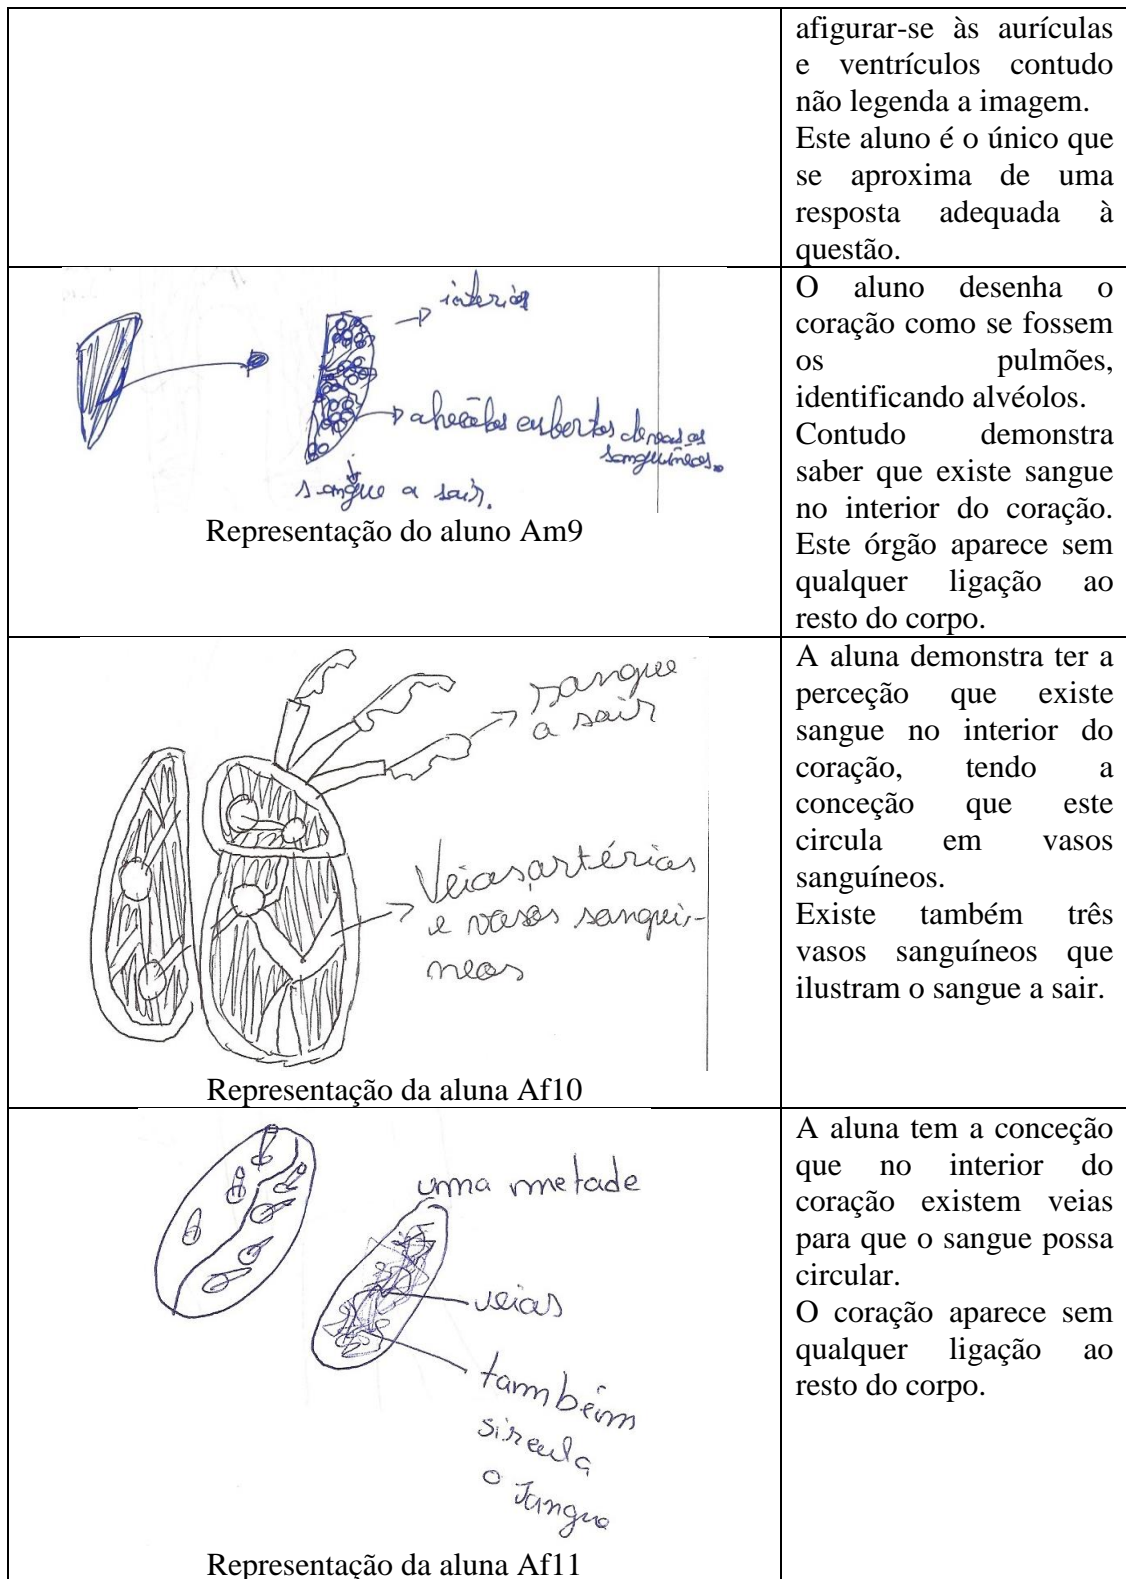 afigurar-se às aurículas
e ventrículos contudo
não legenda a imagem.
Este aluno é o único que
se aproxima de uma
resposta adequada à
questão.
interior
alveolos cubertos de vasos
sanguíneos.
sangue a sair.
Representação do aluno Am9
O aluno desenha o
coração como se fossem
os pulmões,
identificando alvéolos.
Contudo demonstra
saber que existe sangue
no interior do coração.
Este órgão aparece sem
qualquer ligação ao
resto do corpo.
sangue
a sair
Veias, artérias
e vasos sanguí-
neos
Representação da aluna Af10
A aluna demonstra ter a
perceção que existe
sangue no interior do
coração, tendo a
conceção que este
circula em vasos
sanguíneos.
Existe também três
vasos sanguíneos que
ilustram o sangue a sair.
uma metade
veias
também
sircula
o sangue
Representação da aluna Af11
A aluna tem a conceção
que no interior do
coração existem veias
para que o sangue possa
circular.
O coração aparece sem
qualquer ligação ao
resto do corpo.